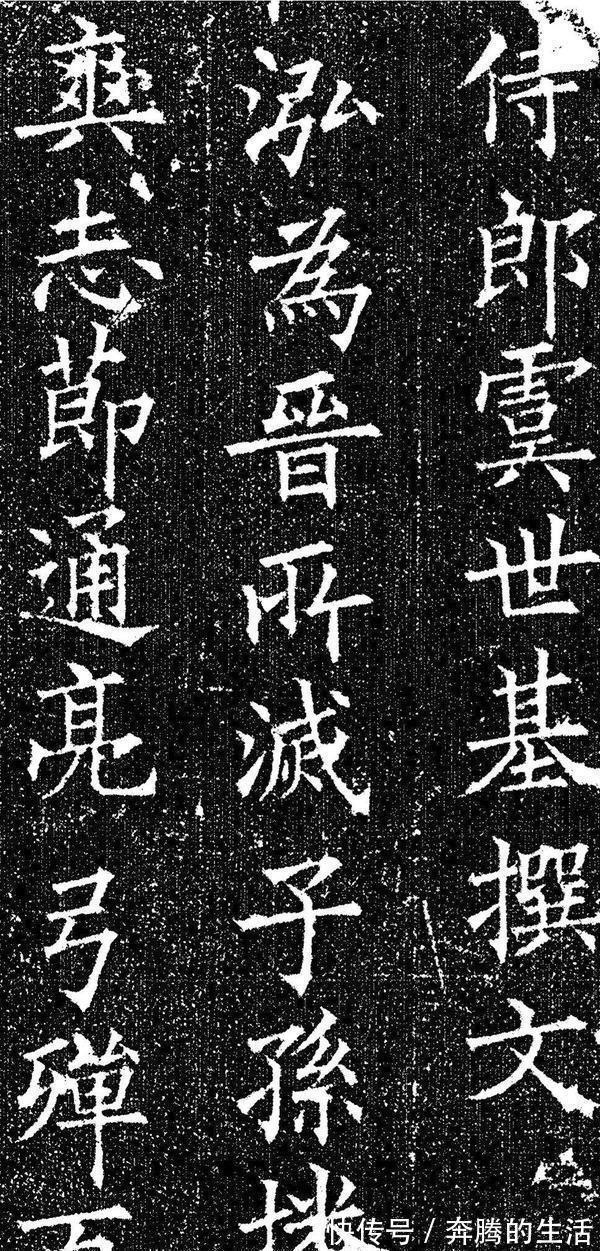 侍郎虞世基撰文
泓為晉所滅子孫
爽志節通亮弓殫
快传号 / 奔腾的生活